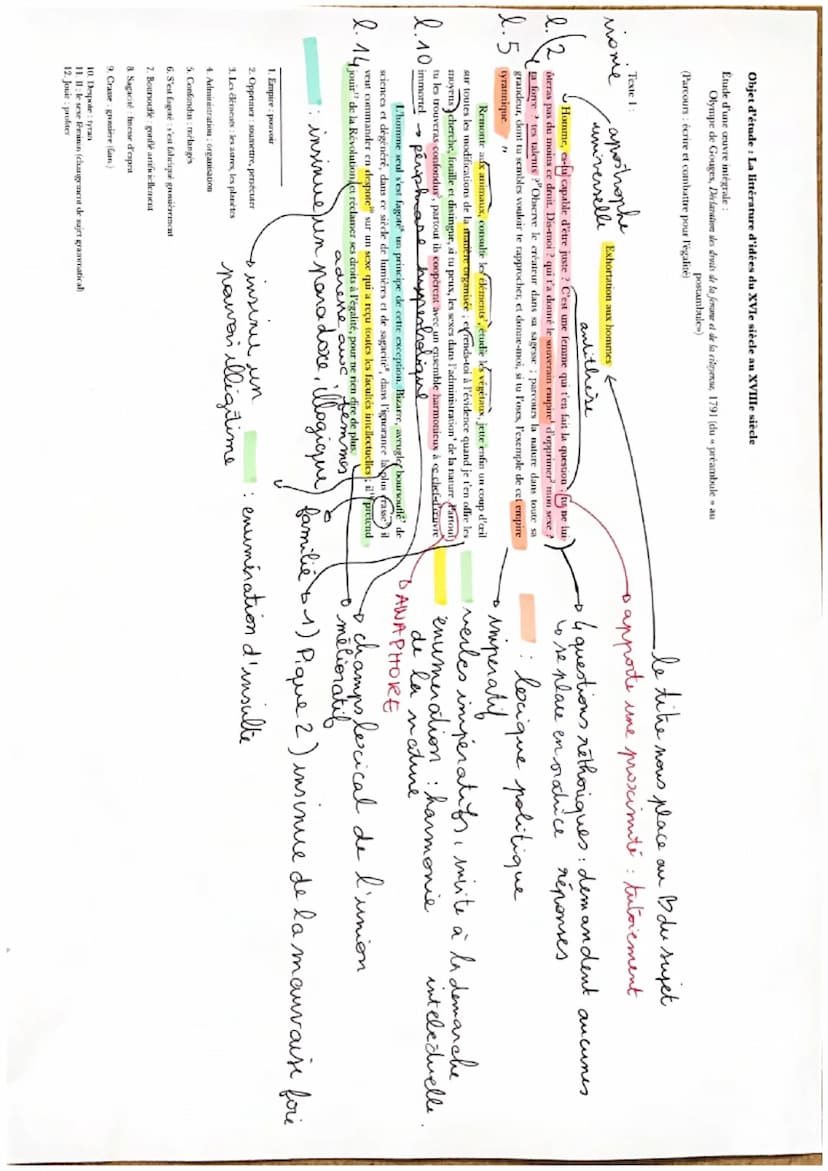 Objet d'étude : La littérature d'idées du XVIe siècle au XVIIIe siècle
Étude d'une œuvre intégrale :
Olympe de Gouges, Déclaration des droits de la femme et de la citoyenne, 1791 (du « préambule » au
postambule»)
(Parcours : écrire et combattre pour l'égalité)
le titre nous place au
du sujet
apporte une proximité : tutoiement
Texte 1 :
ironie
apostrophe
universelle
Exhortation aux hommes
antithèse
l. 2
Homme, es-tu capable d'être juste ? C'est une femme qui t'en fait la question ; tu ne lui
ôteras pas du moins ce droit. Dis-moi ? qui t'a donné le souverain empire¹ d'opprimer² mon sexe ?
ta force ? tes talents ? Observe le créateur dans sa sagesse ; parcours la nature dans toute sa
grandeur, dont tu sembles vouloir te rapprocher, et donne-moi, si tu l'oses, l'exemple de cet empire
l. 5
tyrannique.
4 questions réthoriques : demandent aucunes
réponses
↳ se place en oratrice
: lexique politique
impératif
Remonte aux animaux, consulte les éléments³, étudie les végétaux, jette enfin un coup d'œil
sur toutes les modifications de la matière organisée ; et rends-toi à l'évidence quand je t'en offre les
moyens ; cherche, fouille et distingue, si tu peux, les sexes dans l'administration⁴ de la nature. Partout
tu les trouveras confondus⁵, partout ils coopèrent avec un ensemble harmonieux à ce chef-d'œuvre
l. 10
immortel
→ périphrase hyperbolique
verbes impératifs, invite à la demarche
intelectuelle.
énumération : harmonie
de la nature
ANAPHORE
champs lexical de l'union
mélioratif
L'homme seul s'est fagoté⁶ un principe de cette exception. Bizarre, aveugle, boursouflé⁷ de
sciences et dégénéré, dans ce siècle de lumières et de sagacité⁸, dans l'ignorance la plus crasse⁹, il
veut commander en despote¹⁰ sur un sexe qui a reçu toutes les facultés intellectuelles ; il¹¹ prétend
l. 14
jouir¹² de la Révolution, et réclamer ses droits à l'égalité, pour ne rien dire de plus.
adresse aux femmes
: insinue un paradoxe, illogique
familié → 1) Pique 2) insinue de la mauvaise foie
→ insinue un
pouvoir illégitime
: enumération d'insulte
1. Empire : pouvoir
2. Opprimer : soumettre, persécuter
3. Les éléments : les astres, les planètes
4. Administration : organisation
5. Confondus : mélangés
6. S'est fagoté : s'est fabriqué grossièrement
7. Boursouflé : gonflé artificiellement
8. Sagacité : finesse d'esprit
9. Crasse : grossière (fam.)
10. Despote : tyran
11. Il : le sexe féminin (changement de sujet grammatical)
12. Jouir : profiter